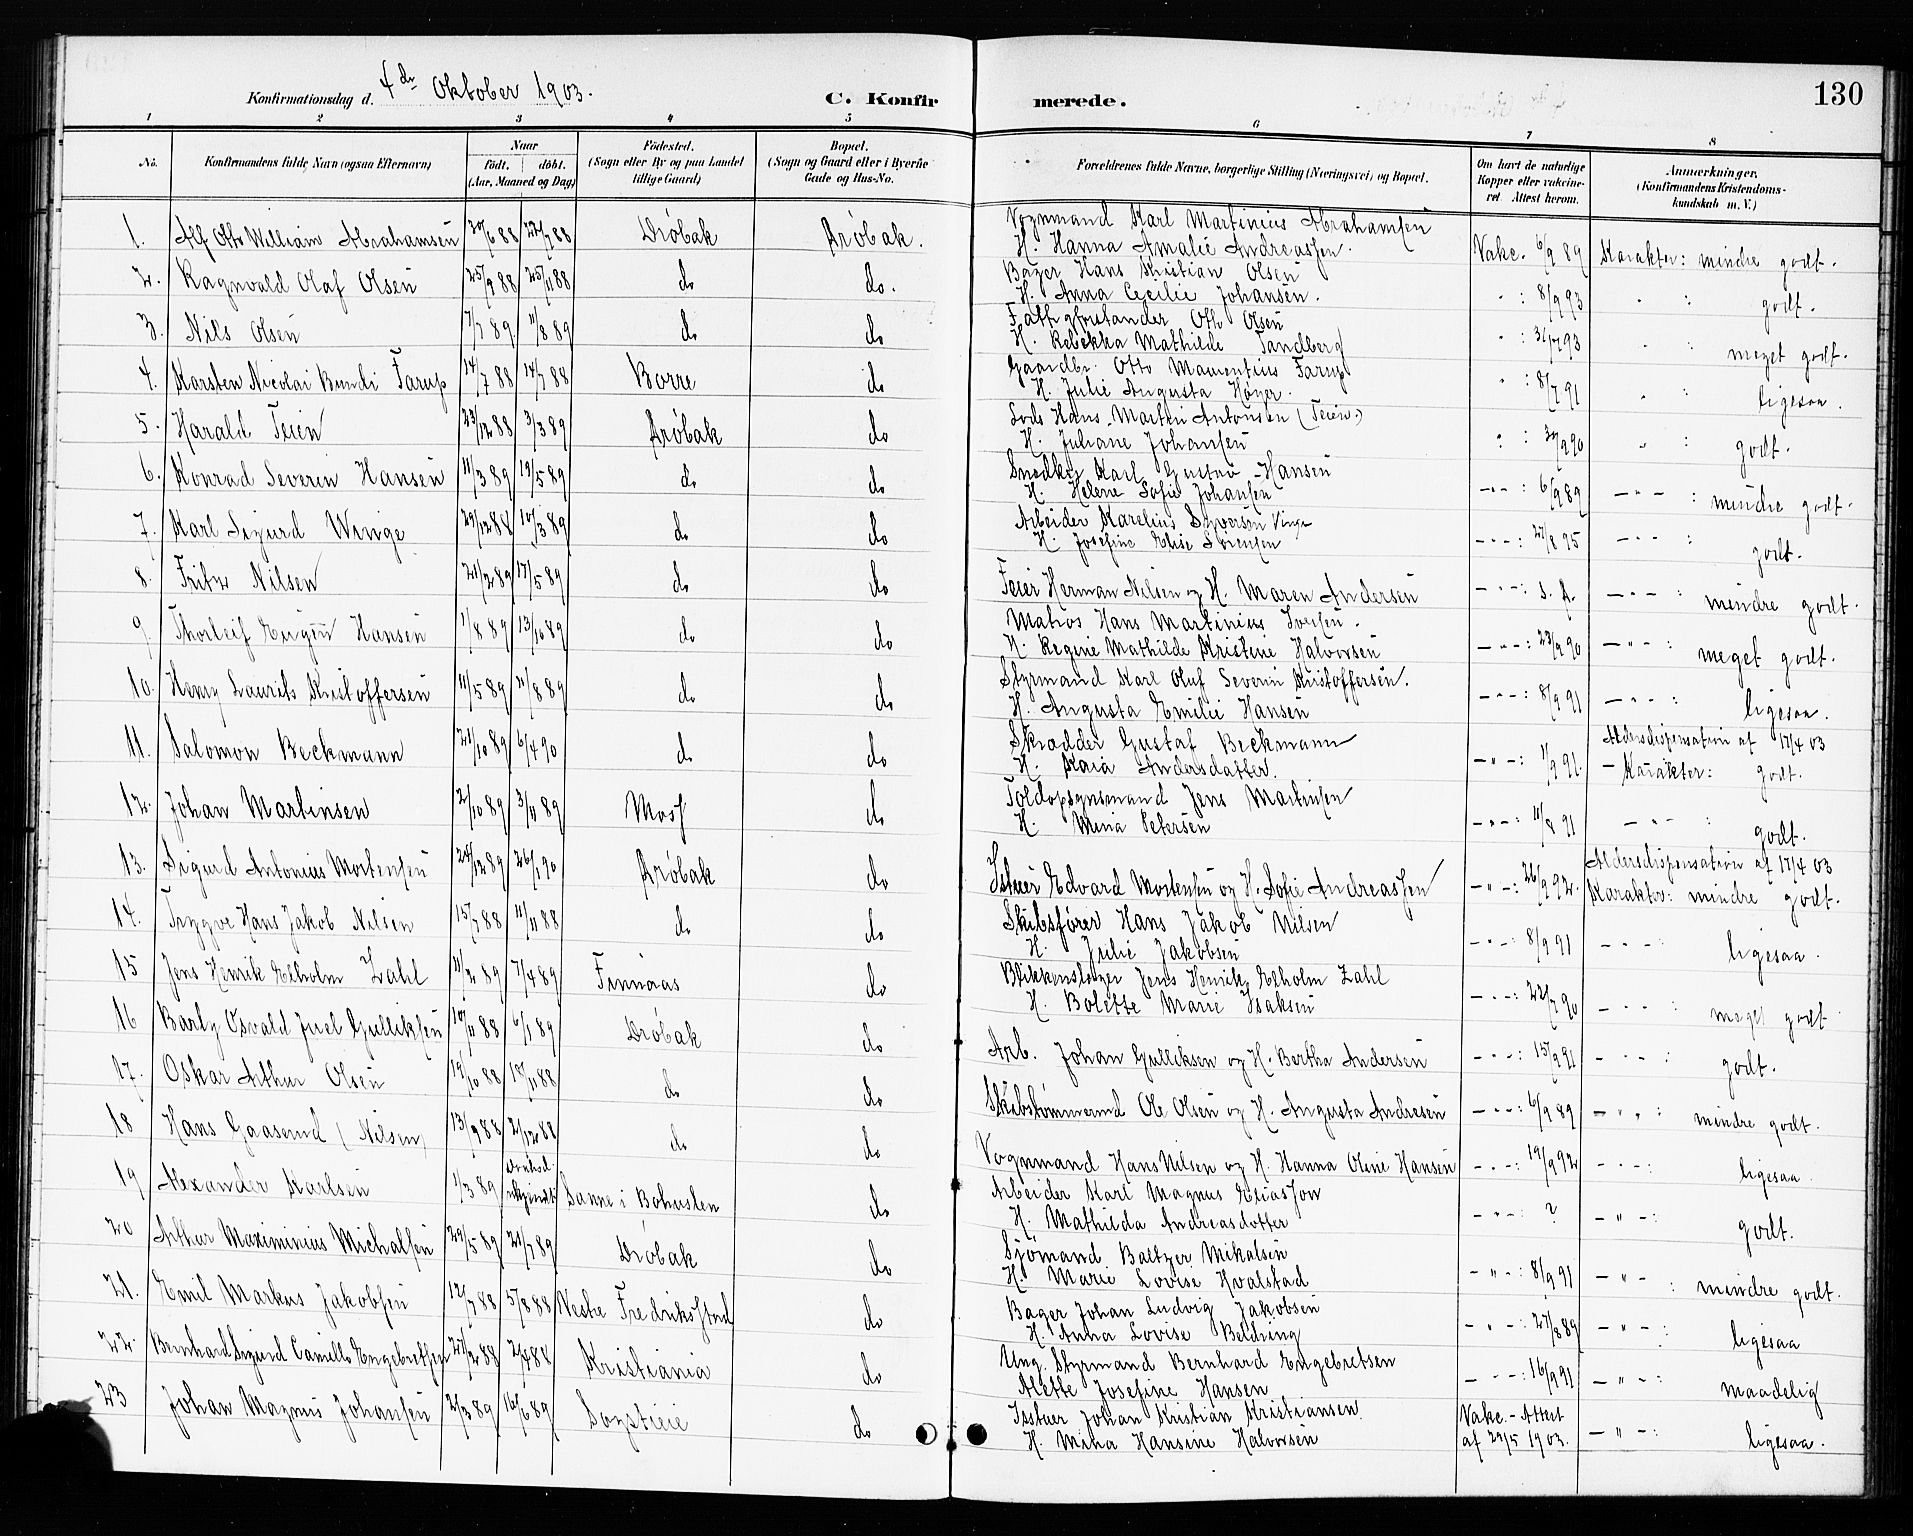 130
Konfirmationsdag d. 4de Oktober 1903.
C. Konfirmerede.
1 2 3 4 5 6 7 8
No. Konfirmandens fulde Navn (ogsaa Efternavn) Naar født. døbt. (Aar, Maaned og Dag) Fødested. (Sogn eller By og paa Landet tillige Gaard) Bopæl. (Sogn og Gaard eller i Byerne Gade og Hus-No. Forældrenes fulde Navne, borgerlige Stilling (Næringsvei) og Bopæl. Om havt de naturlige Kopper eller vakcineret. Attest herom. Anmærkninger. (Konfirmandens Kristendomskundskab m. V.)
1. Alf Otto William Abrahamsen 20/6 88 22/7 88 Drøbak Drøbak. Vognmand Karl Martinius Abrahamsen
H. Hanna Amalie Andreassen. Vakc. 6/9 89 Karakter: mindre godt.
2. Ragnvald Olaf Olsen 25/9 88 25/11 88 do do. Bager Hans Kristian Olsen
H. Anna Cecilie Johansen. " : 8/9 93 " : godt.
3. Nils Olsen 7/7 89 11/8 89 do do Fattigforstander Otto Olsen
H. Rebekka Mathilde Tandberg " : 31/7 93 " : meget godt.
4. Karsten Nicolai Bundi Farup 14/7 88 14/7 88 Borre do Gaardbr. Otto Mamentius Farup
H. Julie Augusta Høyer. " : 8/7 91 " : ligesaa.
5. Harald Teien 23/12 88 3/3 89 Drøbak do Lods Hans Martin Antonsen (Teien)
H. Juliane Johansen " : /9 90 " : godt.
6. Konrad Severin Hansen 11/3 89 19/5 89 do do Snedker Karl Gustav Hansen
H. Helene Sofie Johansen — " — : 6/9 89 — " — : mindre godt.
7. Karl Sigurd Winge 29/12 88 10/3 89 do do Arbeider Karelius Syversen Vinge
H. Josefine Elise Sørensen — " — : 27/8 95 — " — : godt.
8. Fritz Nilsen 21/2 89 17/5 89 do do Feier Herman Nilsen og H. Maren Andersen — " — : s. A. — " — : mindre godt.
9. Thorleif Eugen Hansen 1/8 89 13/10 89 do do Matros Hans Martinius Iversen.
H. Regine Mathilde Kristine Halvorsen — " — : 23/9 90 — " — : meget godt.
10. Henry Laurits Kristoffersen 11/5 89 11/8 89 do do Styrmand Karl Olaf Severin Kristoffersen.
H. Augusta Emilie Hansen — " — : 8/9 91 — " — : ligesaa.
11. Salomon Beckmann 21/10 89 6/4 90 do do Skrædder Gustaf Beckmann
H. Kaia Andersdatter. — " — : 1/9 91. Aldersdispensation af 17/4 03
— Karakter: godt.
12. Johan Martinsen 2/10 89 3/11 89 Moss do Toldopsynsmand Jens Martinsen
H. Mina Petersen — " — : 11/8 91 — " — : godt.
13. Sigurd Antonius Mortensen 24/12 89 26/1 90 Drøbak do Isskuer Edvard Mortensen og H. Sofie Andreassen — " — : 26/9 92. Aldersdispensation af 17/4 03
Karakter: mindre godt.
14. Trygve Hans Jakob Nilsen 15/7 88 11/11 88 do do Skibsfører Hans Jakob Nilsen
H. Julie Jakobsen — " — : 8/9 91 — " — : ligesaa.
15 Jens Henrik Elholm Zahl 11/2 89 7/4 89 Finnaas do Blikkenslager Jens Henrik Elholm Zahl
H. Bolette Marie Isaksen — " — : 22/7 90 — " — : meget godt
16 Barly Osvald Juel Gulliksen 10/11 88 6/1 89 Drøbak do Arb. Johan Gulliksen og H. Bertha Andersen — " — : 15/9 91 — " — : godt.
17. Oskar Arthur Olsen 19/10 88 18/11 88 do do Skibstømmermd Ole Olsen og H. Augusta Andresen — " — : 6/9 89 — " — : mindre godt.
18 Hans Gaaserud (Nilsen) 13/9 88 2/12 88 do do Vognmand Hans Nilsen og H. Hanna Oline Hansen — " — : 19/9 92 — " — : ligesaa.
19 Alexander Karlsen 1/3 89 Sanne i Bohuslen do Arbeider Karl Magnus Eliasson
H. Mathilda Andreasdotter — " — ? — " — : godt.
20 Arthur Maximinius Michalsen 29/5 89 21/7 89 Drøbak do Sjømand Baltzer Mikalsen
H. Marie Lovise Hvalstad — " — : 8/9 91 — " — : mindre godt.
21. Emil Markus Jakobsen 12/7 88 5/8 88 Vestre Fredriksstad do Bager Johan Ludvig Jakobsen
H. Anna Lovise Beldring — " — : 27/8 89 — " — : ligesaa
22. Bernhard Sigurd Camillo Engebretsen 27/2 88 2/4 88 Kristiania do Ung. Styrmand Bernhard Engebretsen
Alette Josefine Hansen — " — : 16/9 91 — " — : maadelig
23 Johan Magnus Johansen 2/3 89 16/6 89 do Isskuer Johan Kristian Kristiansen
H. Mina Hansine Halvorsen Vakc. - Attest
af 29/5 1903. — " — : ligesaa.